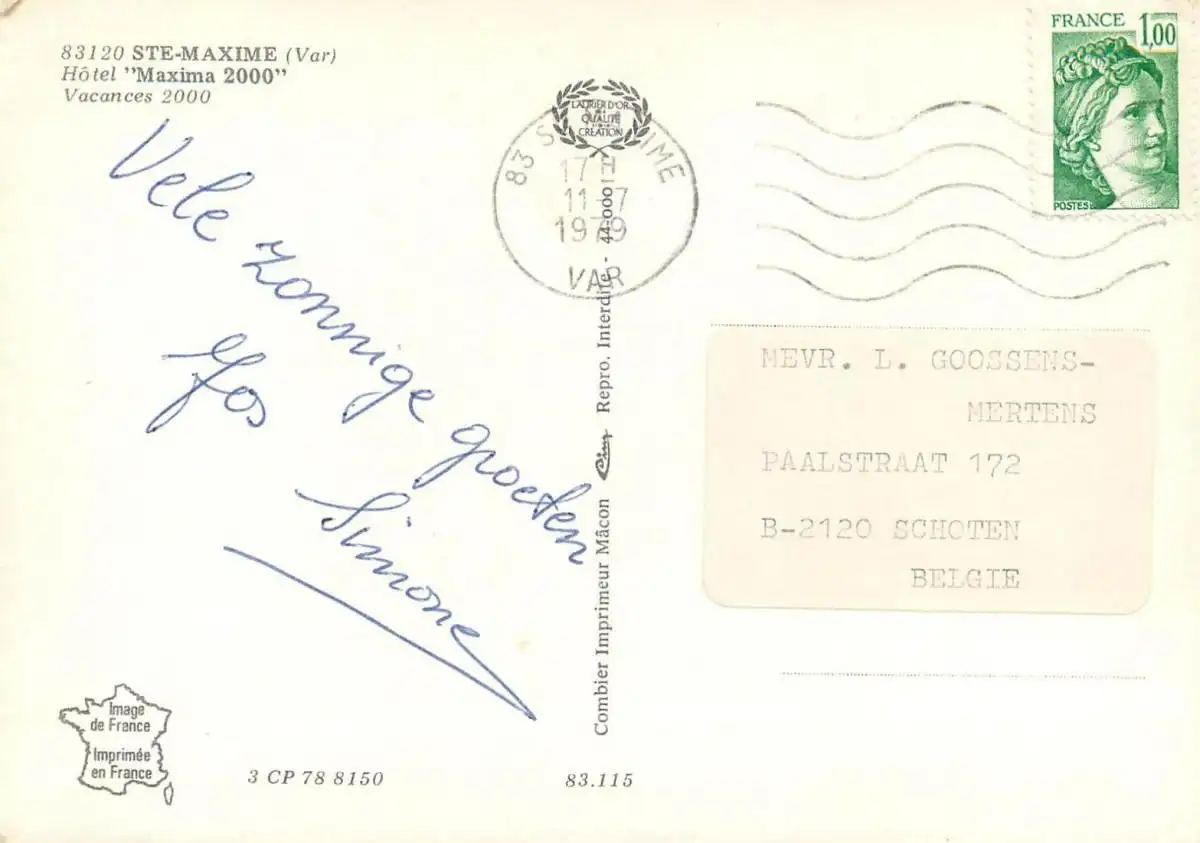 83120 STE-MAXIME (Var)
Hôtel "Maxima 2000"
Vacances 2000
Vele zonnige groeten
Jos
Simone
LAURIER D'OR
QUALITÉ
CRÉATION
83 S IME
17 H
11-7
1979
VAR
FRANCE
1,00
POSTES
MEVR. L. GOOSSENS-
MERTENS
PAALSTRAAT 172
B-2120 SCHOTEN
BELGIE
Combier Imprimeur Mâcon Cim Repro. Interdite - 44.000
Image
de France
Imprimée
en France
3 CP 78 8150
83.115